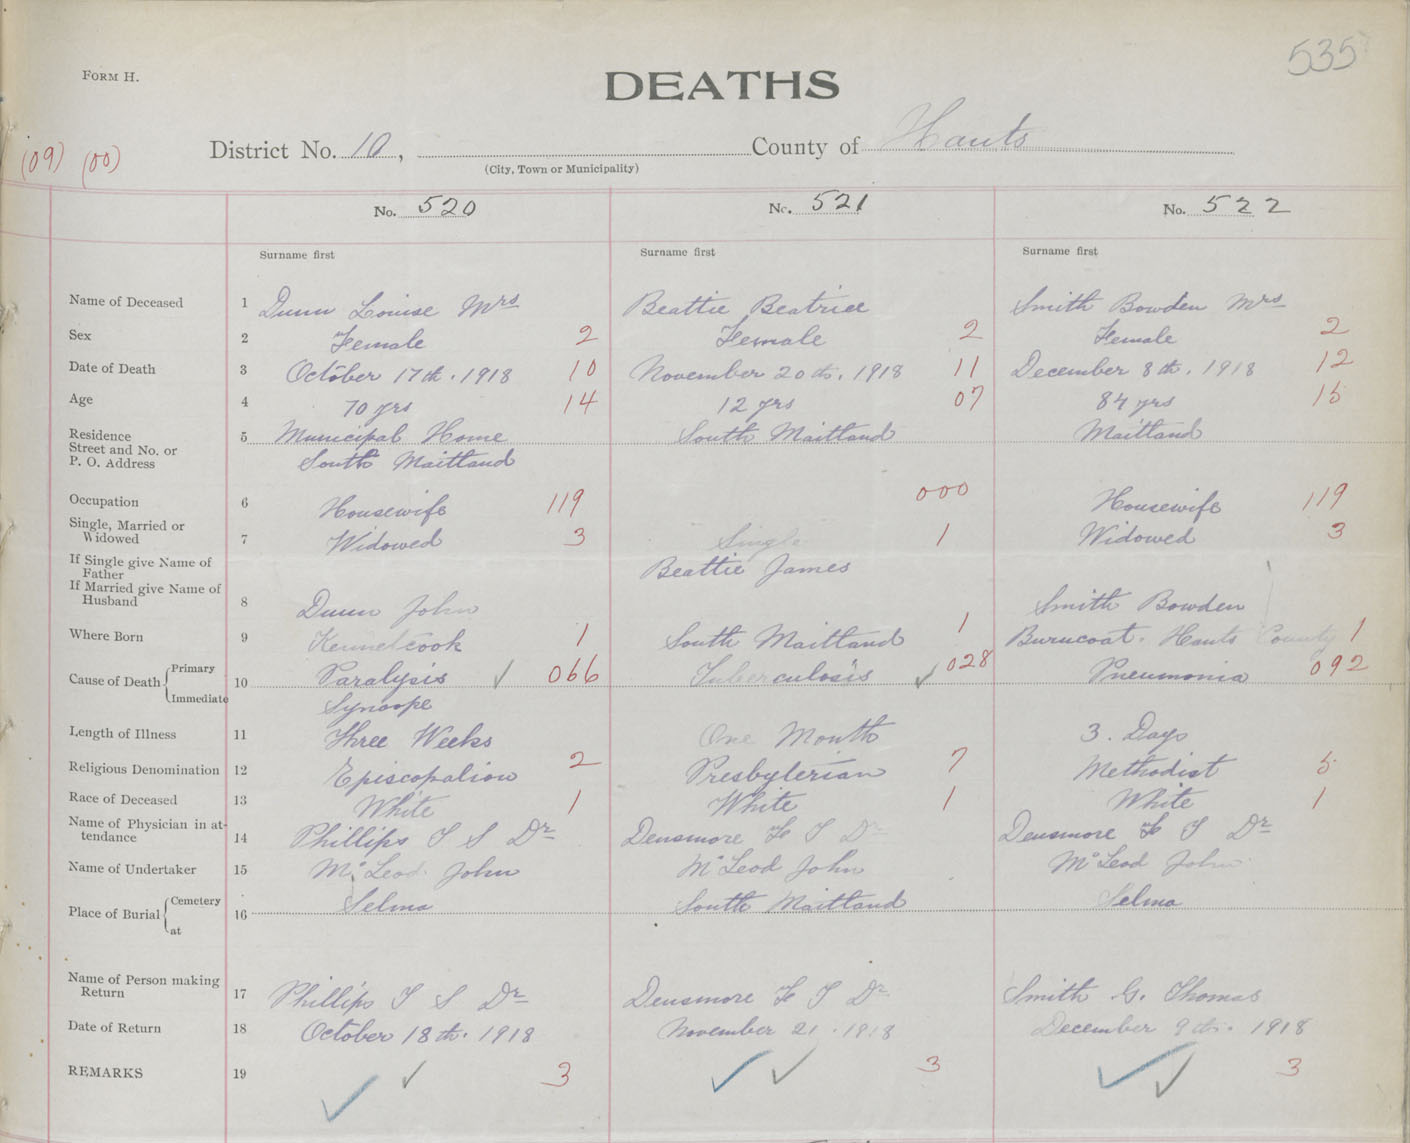 535
FORM H.
DEATHS
(09) (00)
District No. 10, County of Hants
(City, Town or Municipality)
No. 520 No. 521 No. 522
Surname first Surname first Surname first
Name of Deceased 1 Dunn Louise Mrs Beattie Beatrice Smith Bowden Mrs
Sex 2 Female 2 Female 2 Female 2
Date of Death 3 October 17th. 1918 10 November 20th. 1918 11 December 8th. 1918 12
Age 4 70 yrs 14 12 yrs 07 84 yrs 15
Residence 5 Municipal Home South Maitland Maitland
Street and No. or
P. O. Address South Maitland
Occupation 6 Housewife 119 000 Housewife 119
Single, Married or
Widowed 7 Widowed 3 Single 1 Widowed 3
If Single give Name of
Father Beattie James
If Married give Name of
Husband 8 Dunn John Smith Bowden
Where Born 9 Kennetcook 1 South Maitland 1 Burncoat. Hants County 1
Cause of Death Primary 10 Paralysis ✓ 066 Tuberculosis ✓ 028 Pneumonia 092
Immediate Syncope
Length of Illness 11 Three Weeks One Month 3. Days
Religious Denomination 12 Episcopalion 2 Presbyterian 7 Methodist 5
Race of Deceased 13 White 1 White 1 White 1
Name of Physician in at-
tendance 14 Phillips T S Dr Densmore F T Dr Densmore F T Dr
Name of Undertaker 15 McLeod John McLeod John McLeod John
Place of Burial Cemetery 16 Selma South Maitland Selma
at
Name of Person making
Return 17 Phillips T S Dr Densmore F T Dr Smith G. Thomas
Date of Return 18 October 18th. 1918 November 21. 1918 December 9th. 1918
REMARKS 19 ✓ ✓ 3 ✓ ✓ 3 ✓ ✓ 3